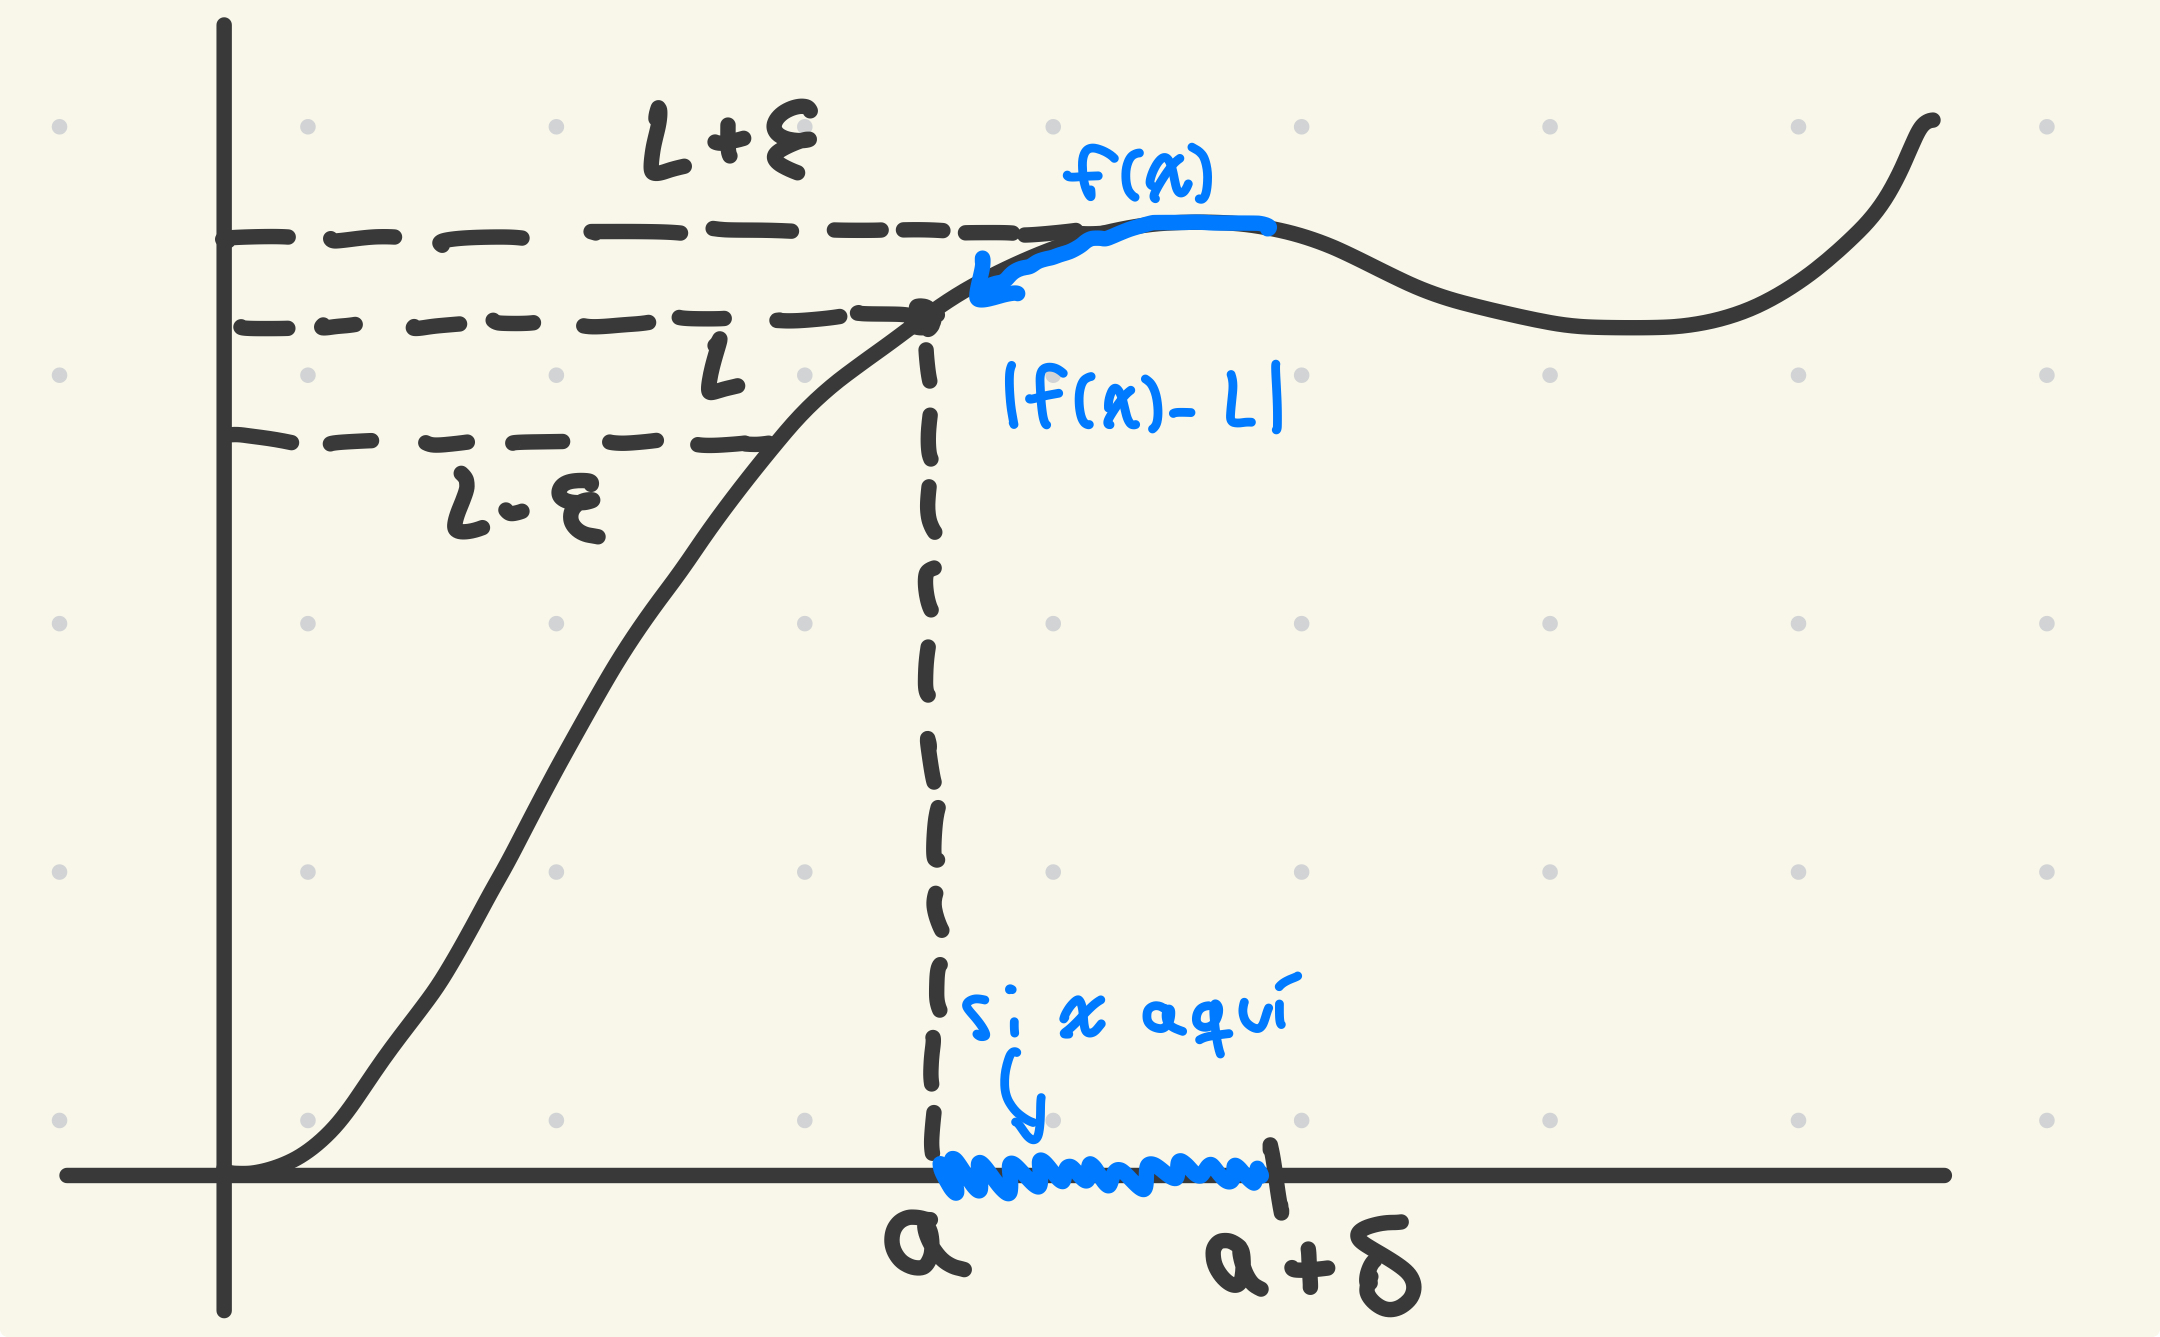 L+ε
f(x)
L
|f(x)-L|
L-ε
si x aquí
a
a+δ